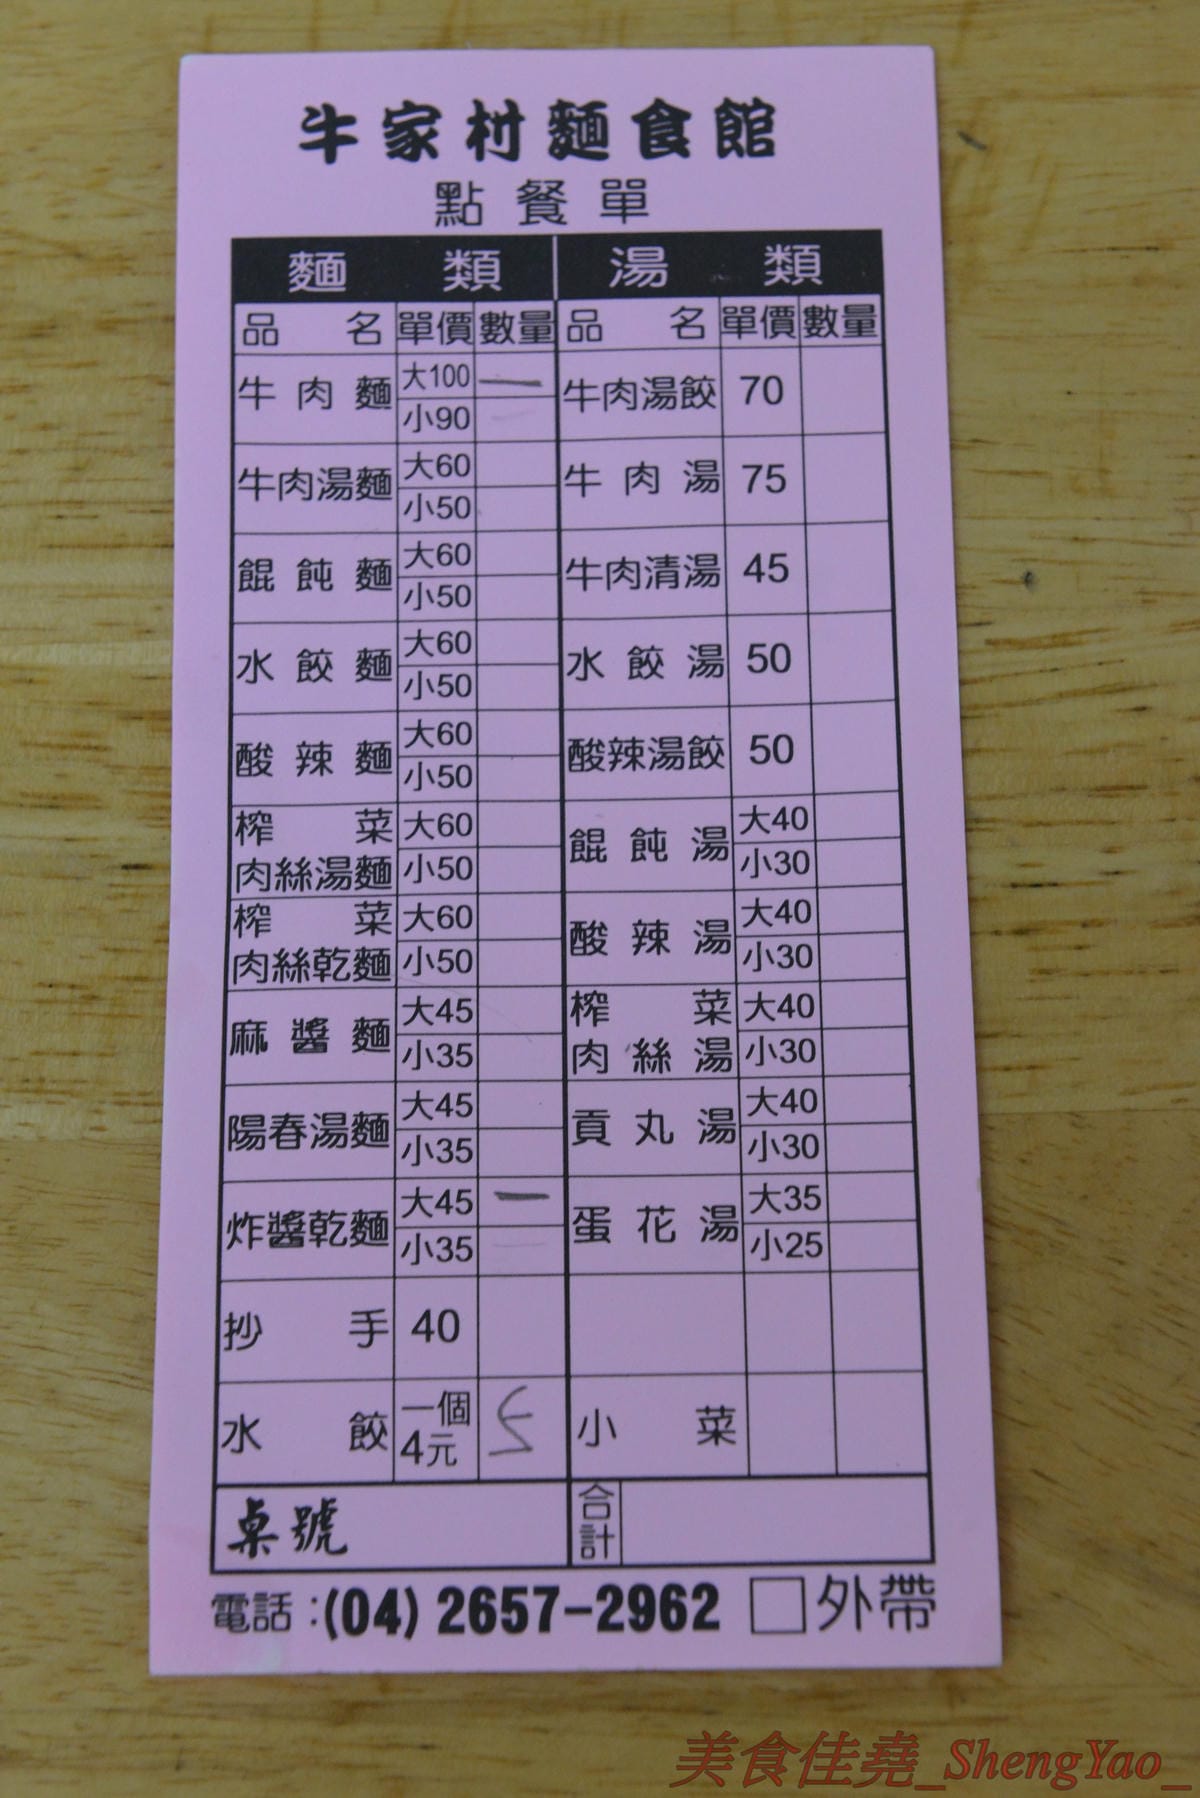 牛家村麵食館
點餐單
麵類 湯類
品名 單價 數量 品名 單價 數量
牛肉麵 大100 一 牛肉湯餃 70
小90
牛肉湯麵 大60 牛肉湯 75
小50
餛飩麵 大60 牛肉清湯 45
小50
水餃麵 大60 水餃湯 50
小50
酸辣麵 大60 酸辣湯餃 50
小50
榨菜 大60 餛飩湯 大40
肉絲湯麵 小50 小30
榨菜 大60 酸辣湯 大40
肉絲乾麵 小50 小30
麻醬麵 大45 榨菜 大40
小35 肉絲湯 小30
陽春湯麵 大45 貢丸湯 大40
小35 小30
炸醬乾麵 大45 一 蛋花湯 大35
小35 小25
抄手 40
水餃 一個 5 小菜
4元
桌號 合計
電話:(04) 2657-2962 □外帶
美食佳堯_ShengYao_